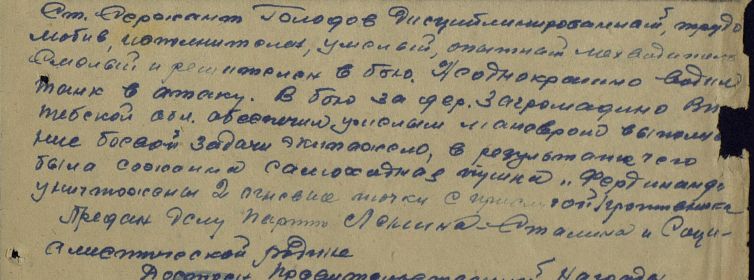 Ст. Сержант Голофов Дисциплинированный, трудо
любив, исполнителен, умелый, опытный механ водитель
Смелый и решителен в бою. Неоднократно водил
танк в атаку. В бою за дер. Загромадино Ви
тебской обл. обеспечил умелым маневром выполне
ние боевой задачи экипажем, в результате чего
была сожжена самоходная пушка „Фердинанд"
уничтожены 2 огневые точки с прислугой противника
Предан делу партии Ленина-Сталина и Соци-
алистической родине
Достоин Правительственной Награды